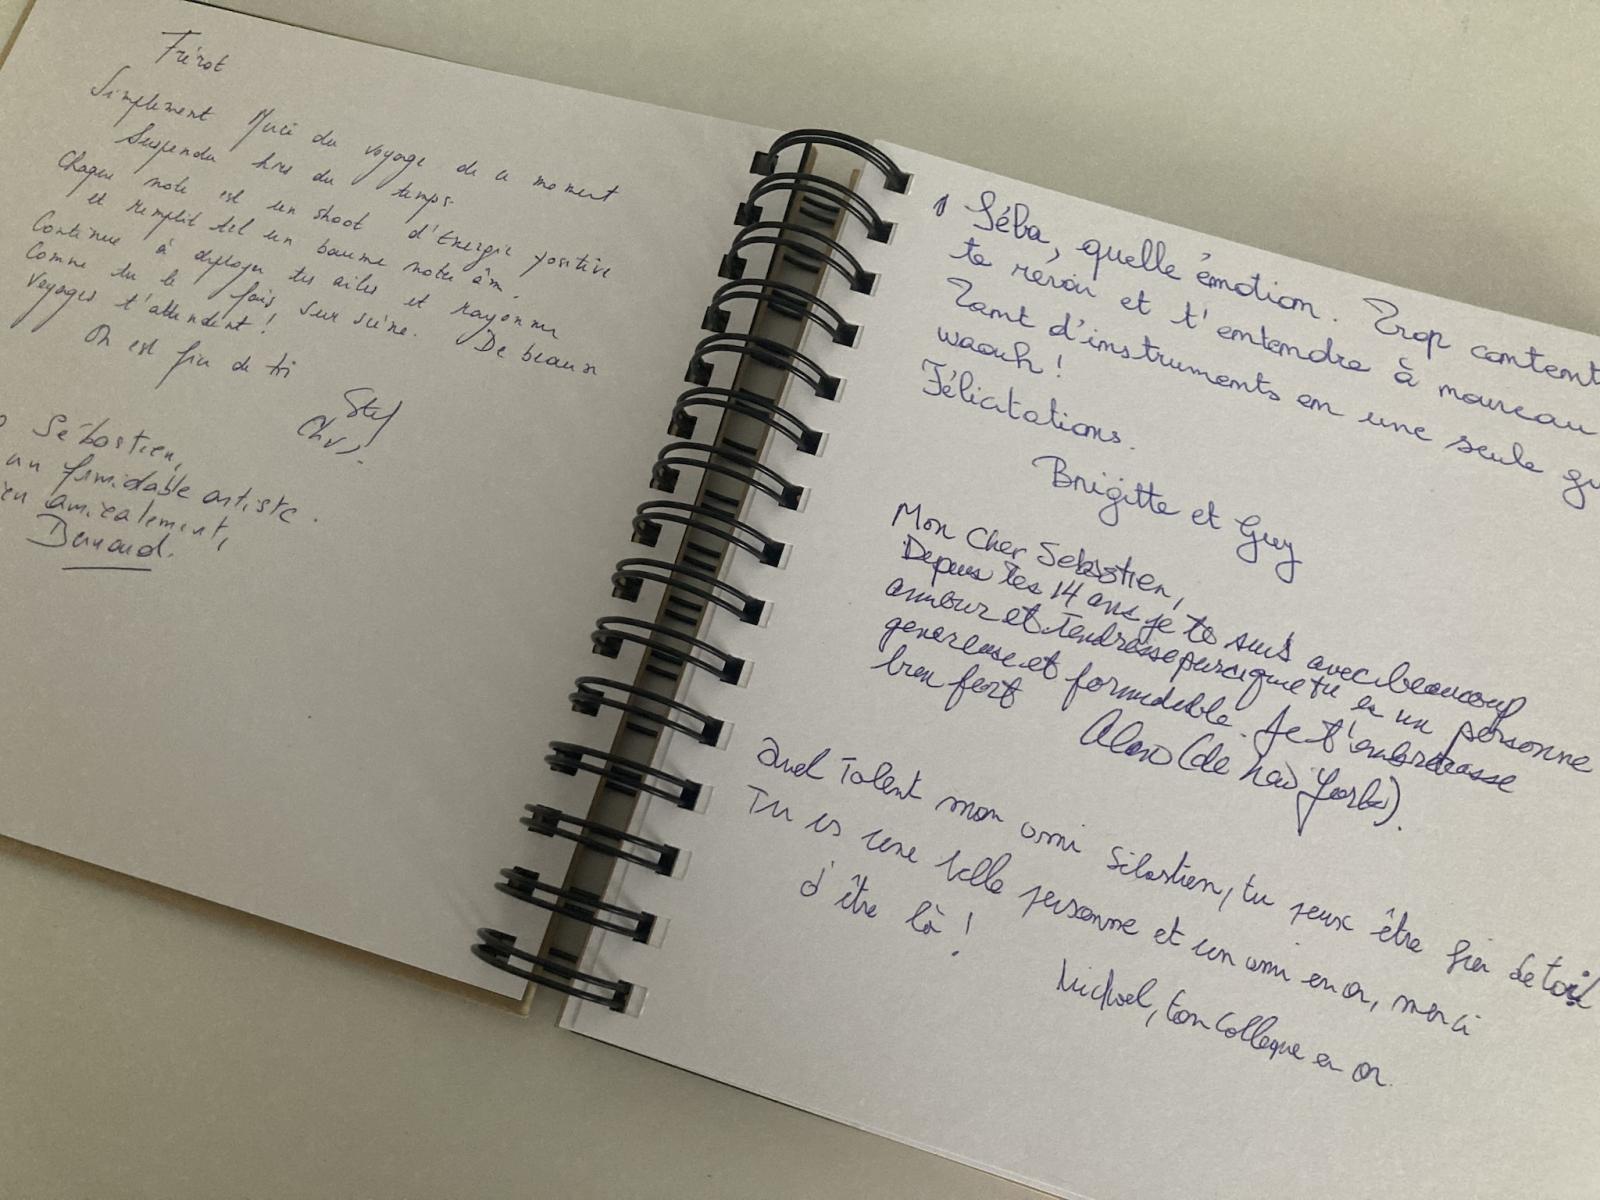 Frérot
Simplement Merci du voyage de ce moment
Suspendu hors du temps.
Chaque note est un shoot d'Energie positive
et remplit tel un baume notre âme.
Continue à deployer tes ailes et rayonner
Comme tu le fais sur scène. De beaux
voyages t'attendent !
On est fier de ti
Stef
Chr
Sébastien,
un formidable artiste.
amicalement,
Bernard.
Séba, quelle émotion. Trop content
te revoir et t'entendre à nouveau
Tant d'instruments en une seule
waouh !
Félicitations.
Brigitte et Guy
Mon Cher Sebastien,
Depuis tes 14 ans je te suis avec beaucoup
amour et tendresse parceque tu es un personne
genereuse et formidable. Je t'embrasse
bien fort
(de
Quel Talent mon ami Sébastien, tu peux être fier de toi
Tu es une belle personne et un ami en or, merci
d'être là !
Michael, ton collègue en or.